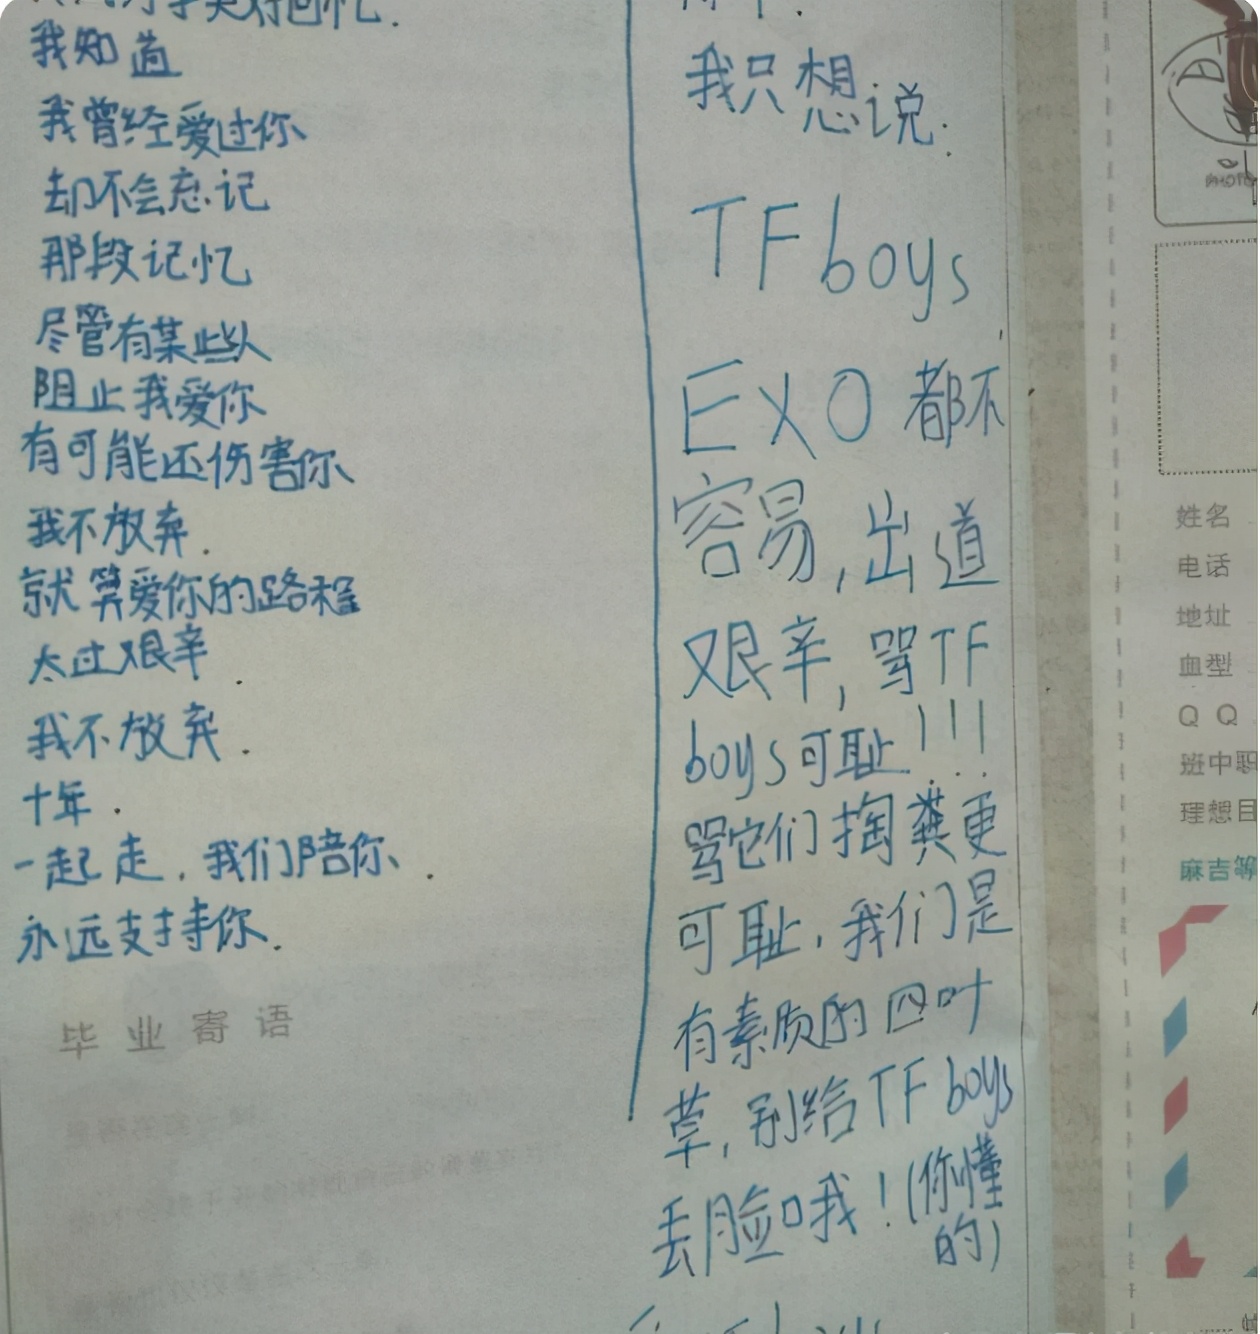 美好回忆.
我知道
我曾经爱过你
却不会忘记
那段记忆
尽管有某些人
阻止我爱你
有可能还伤害你
我不放弃.
就算爱你的路程
太过艰辛.
我不放弃.
十年.
一起走.我们陪你、.
永远支持你.
毕业寄语
我只想说.
TFboys
EXO都不
容易,出道
艰辛,骂TF
boys可耻!!!
骂它们掏粪更
可耻.我们是
有素质的四叶
草,别给TFboys
丢脸哦!(你懂
的)
姓名
电话
地址
血型
QQ
班中职
理想目
麻吉等